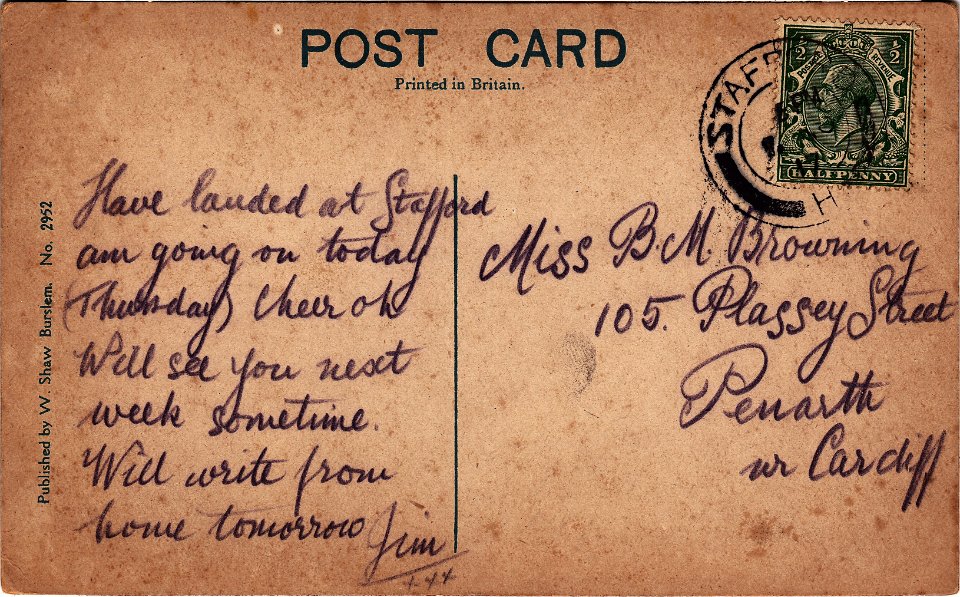 POST CARD
Printed in Britain.
STAFF
½ ½
POSTAGE REVENUE
HALFPENNY
Have landed at Stafford
am going on today
(Thursday) Cheer oh
Will see you next
week sometime.
Will write from
home tomorrow
Jim
+++
Miss B. M. Browning
105. Plassey Street
Penarth
nr Cardiff
Published by W. Shaw Burslem. No. 2952